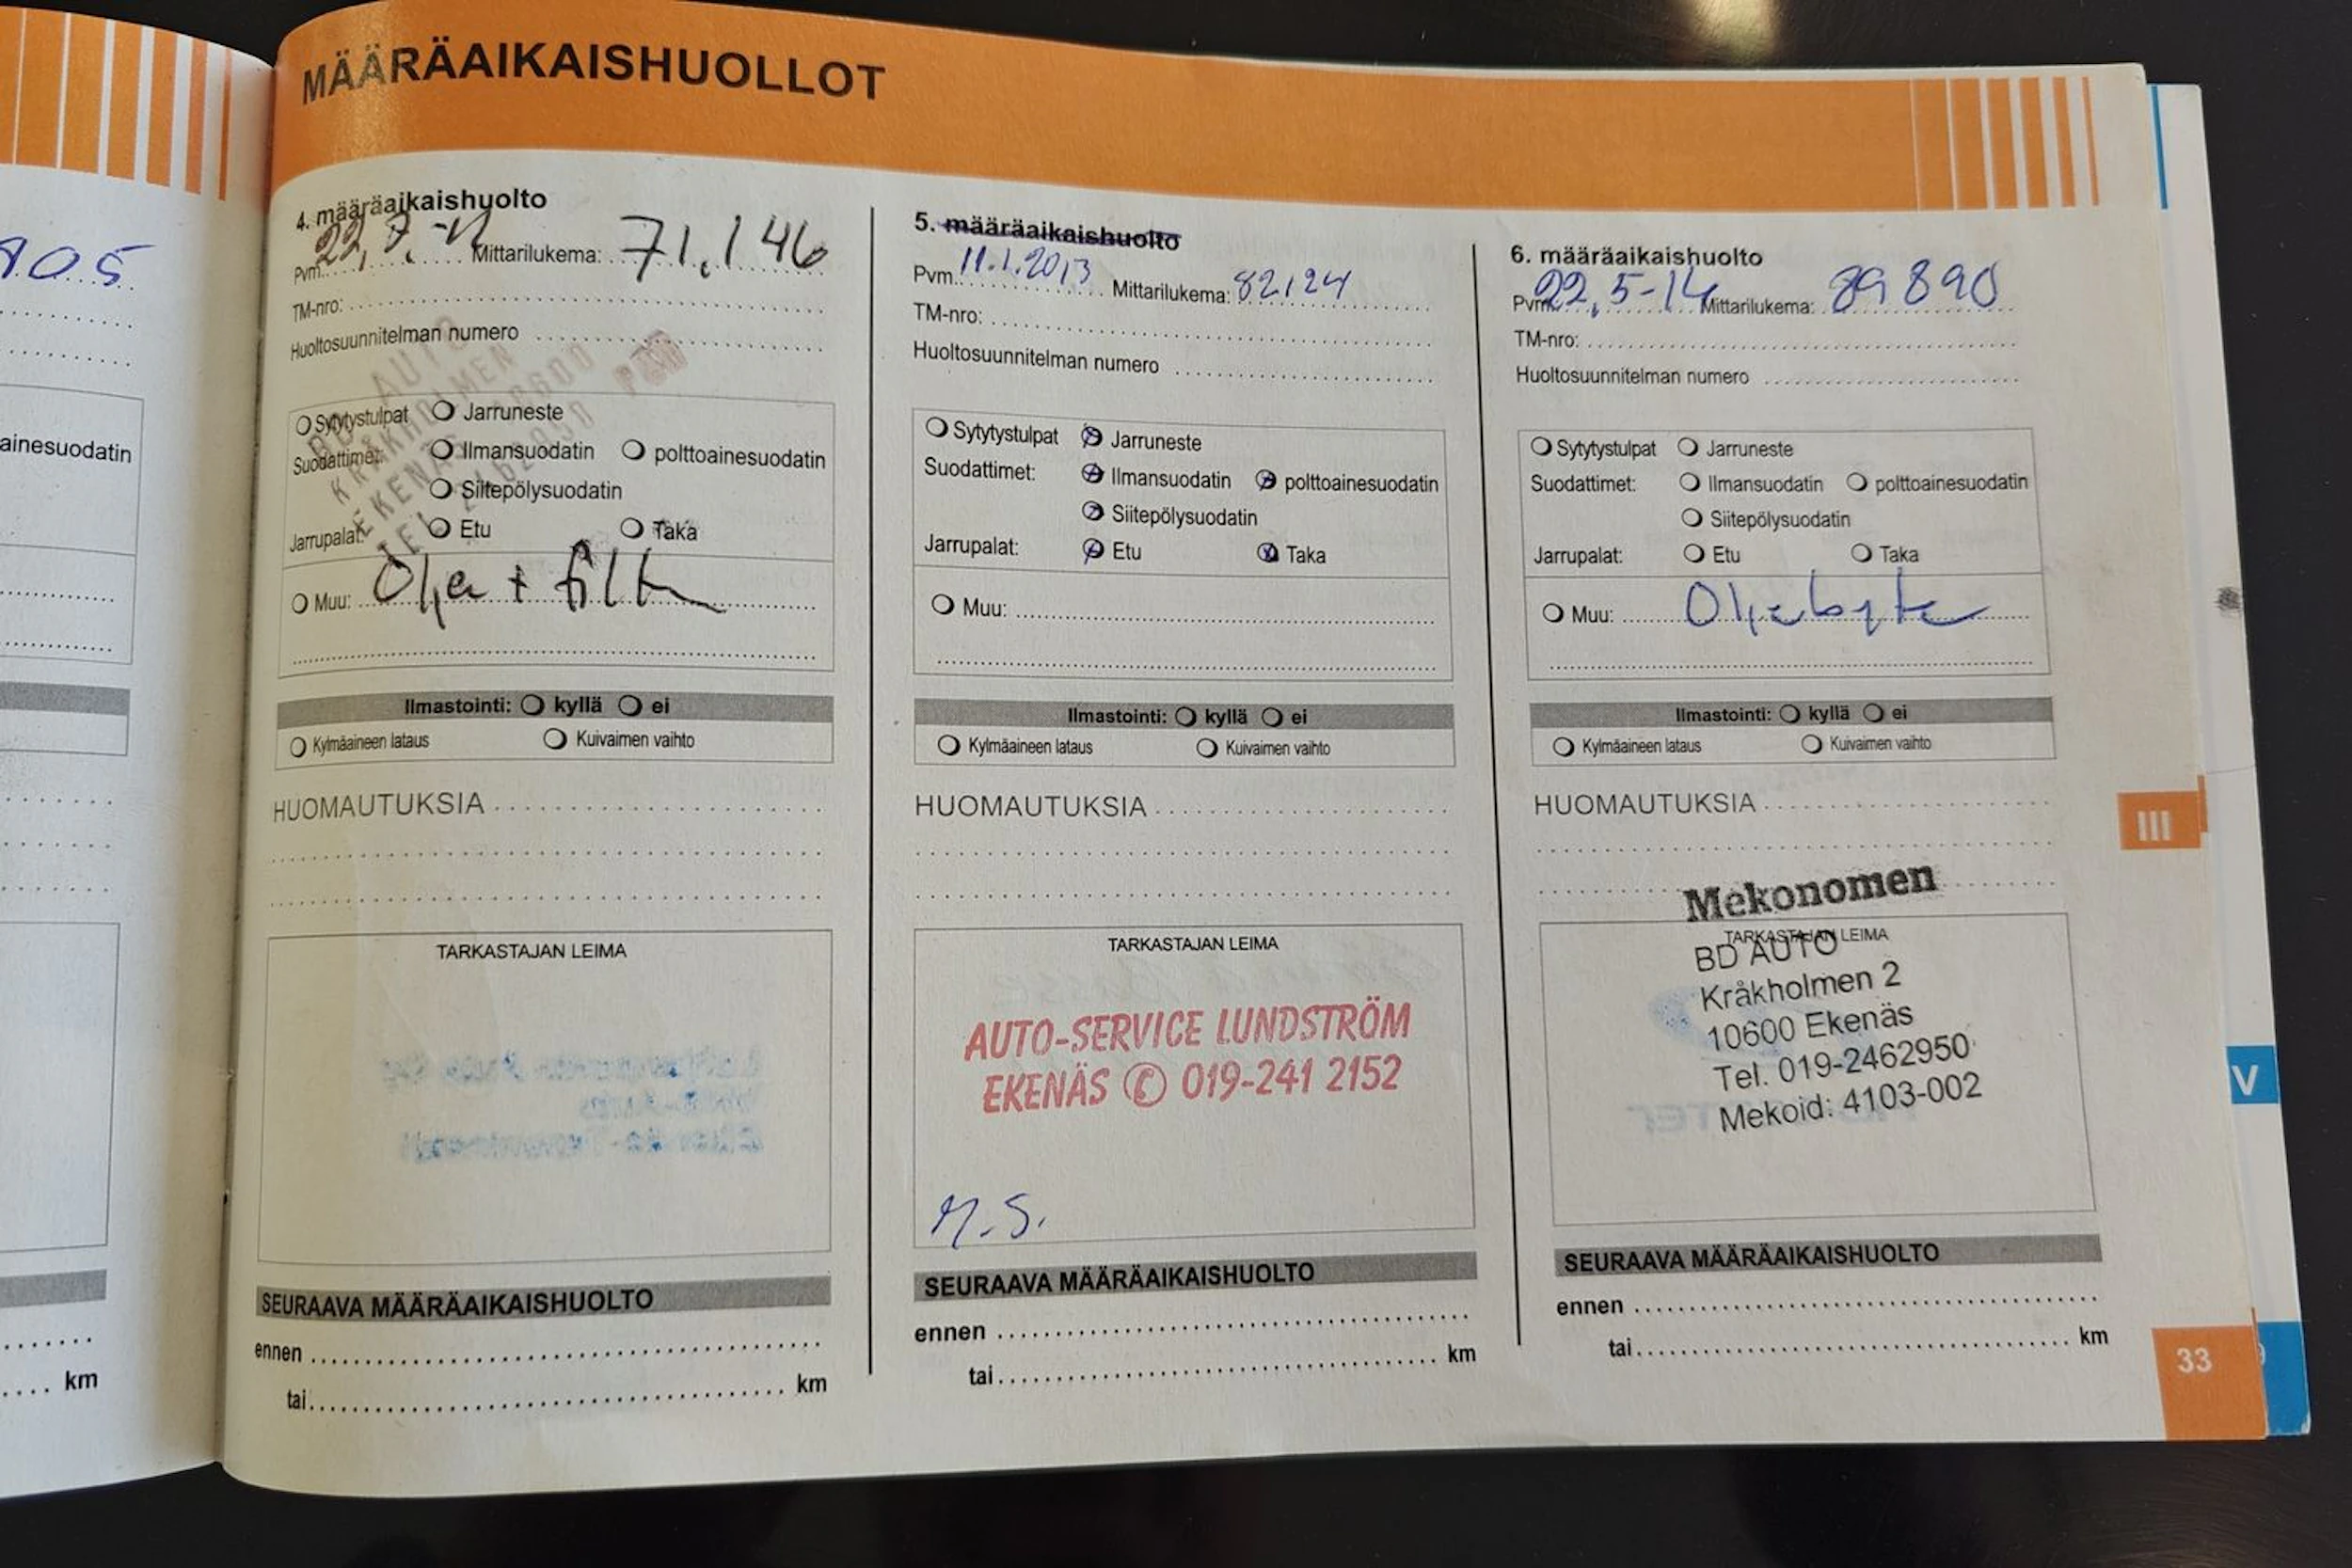 MÄÄRÄAIKAISHUOLLOT
905
ainesuodatin
km
4. määräaikaishuolto
Pvm. 22,7.-11 Mittarilukema: 71.146
TM-nro:
Huoltosuunnitelman numero
AUTO
KRÅKHOLMEN
EKENÄS 10600
Sytytystulpat Jarruneste
Suodattimet: Ilmansuodatin polttoainesuodatin
Siitepölysuodatin
Jarrupalat: Etu Taka
Muu: Olja + filt
Ilmastointi: kyllä ei
Kylmäaineen lataus Kuivaimen vaihto
HUOMAUTUKSIA
TARKASTAJAN LEIMA
SEURAAVA MÄÄRÄAIKAISHUOLTO
ennen
tai km
5. määräaikaishuolto
Pvm. 11.1.2013 Mittarilukema: 82124
TM-nro:
Huoltosuunnitelman numero
Sytytystulpat Jarruneste
Suodattimet: Ilmansuodatin polttoainesuodatin
Siitepölysuodatin
Jarrupalat: Etu Taka
Muu:
Ilmastointi: kyllä ei
Kylmäaineen lataus Kuivaimen vaihto
HUOMAUTUKSIA
TARKASTAJAN LEIMA
AUTO-SERVICE LUNDSTRÖM
EKENÄS ✆ 019-241 2152
M.S.
SEURAAVA MÄÄRÄAIKAISHUOLTO
ennen
tai km
6. määräaikaishuolto
Pvm. 22,5-14 Mittarilukema: 89890
TM-nro:
Huoltosuunnitelman numero
Sytytystulpat Jarruneste
Suodattimet: Ilmansuodatin polttoainesuodatin
Siitepölysuodatin
Jarrupalat: Etu Taka
Muu: Oljebyte
Ilmastointi: kyllä ei
Kylmäaineen lataus Kuivaimen vaihto
HUOMAUTUKSIA
Mekonomen
TARKASTAJAN LEIMA
BD AUTO
Kråkholmen 2
10600 Ekenäs
Tel. 019-2462950
Mekoid: 4103-002
SEURAAVA MÄÄRÄAIKAISHUOLTO
ennen
tai km
III
V
33